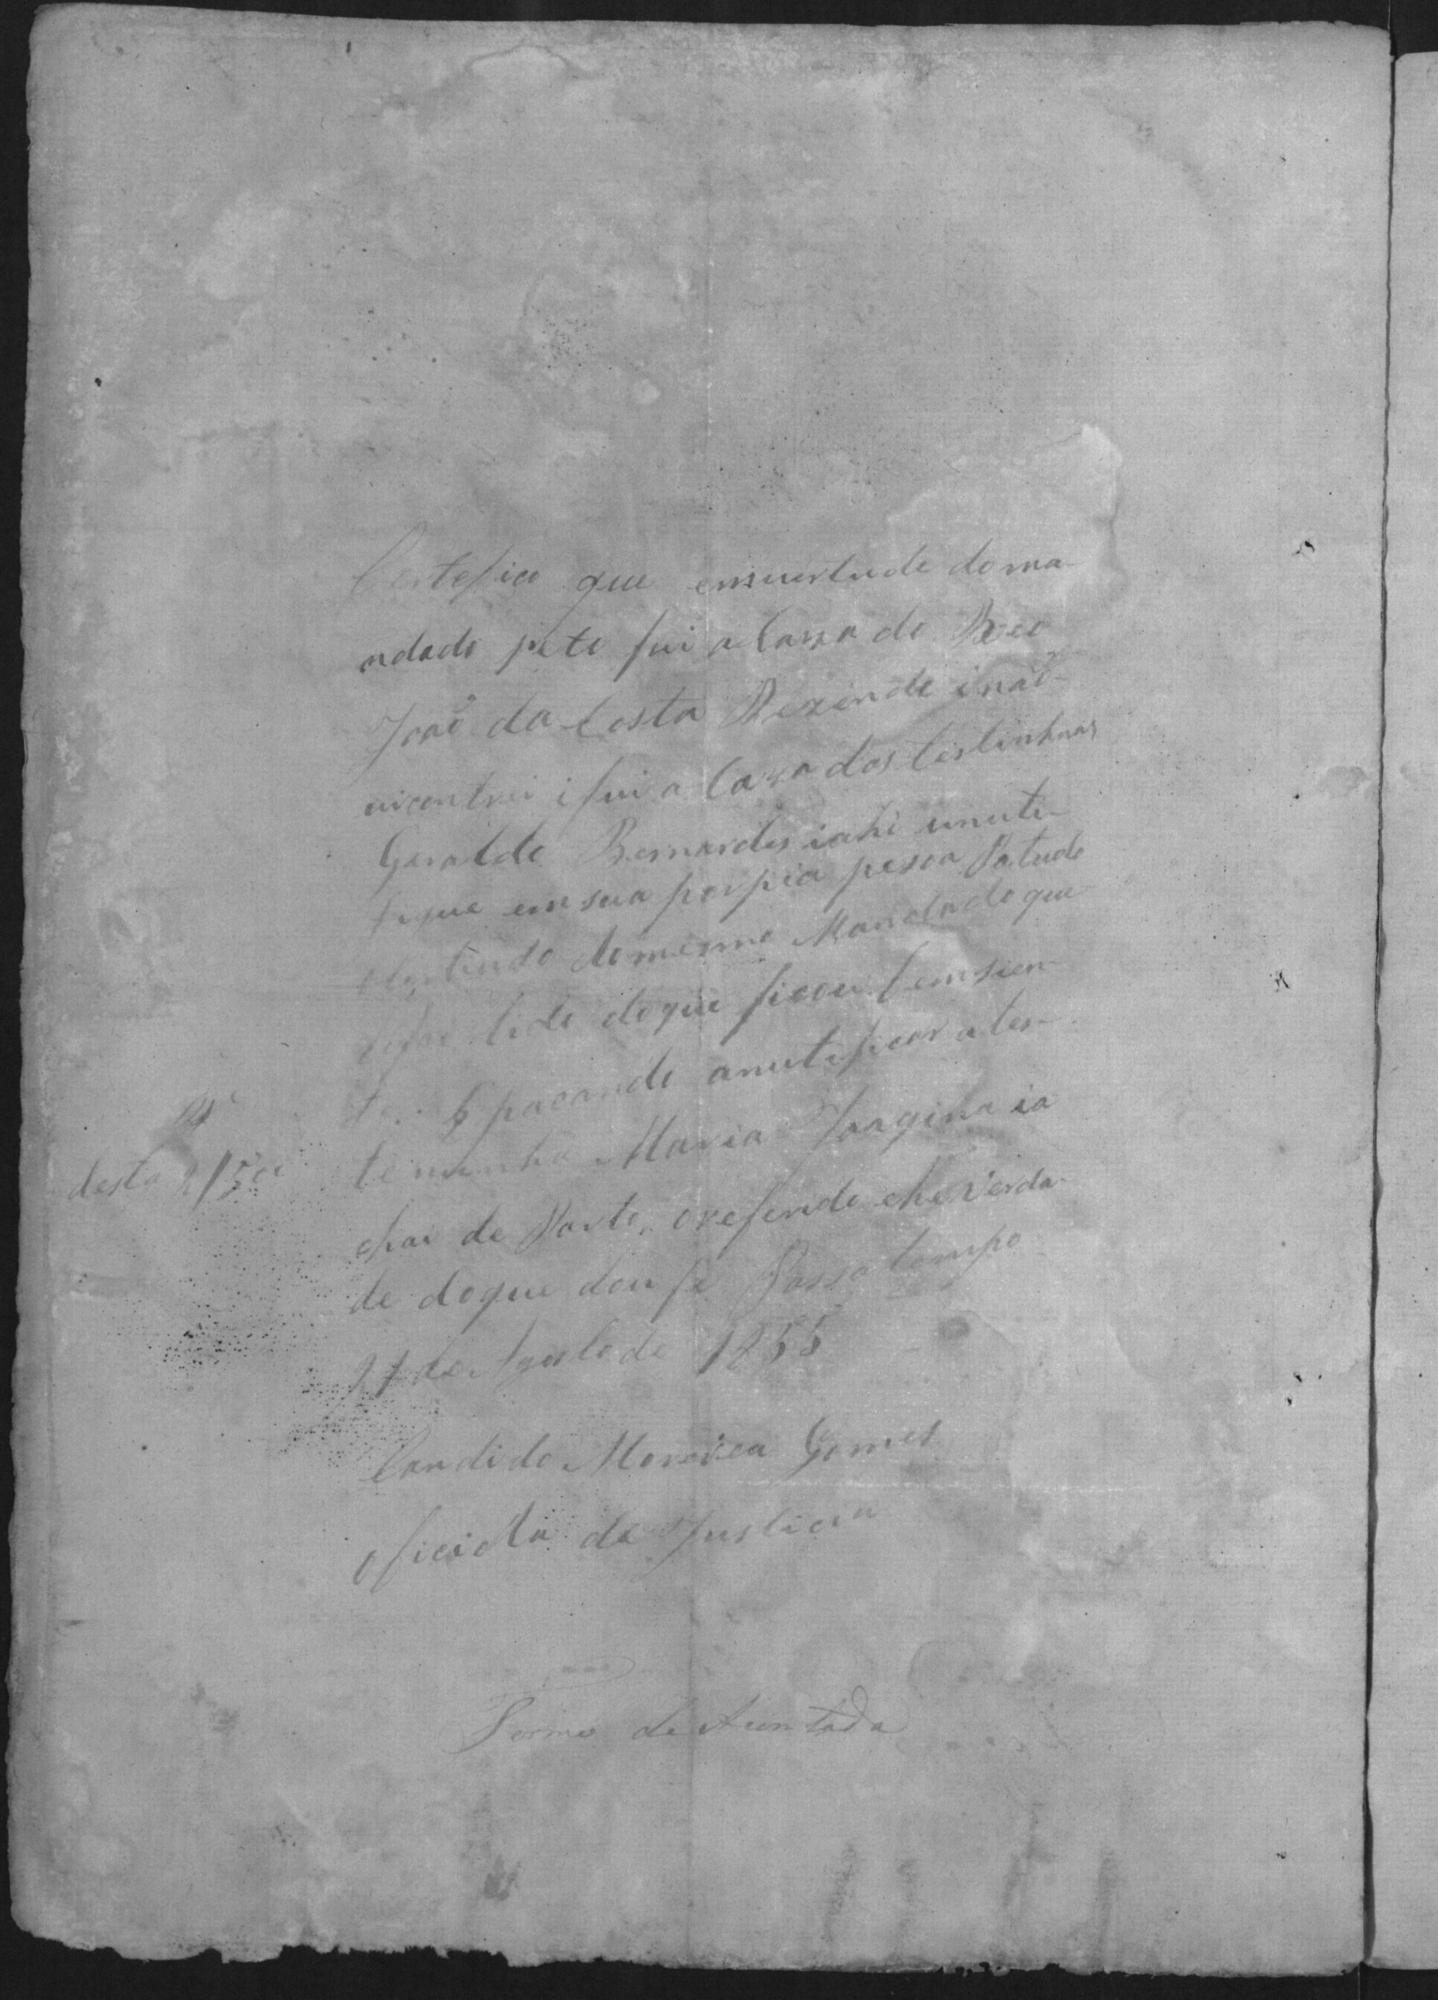 Certefico que emvertude doma-
ndado reto fui a Caza do Reeo
João da Costa Rezende i não
incontrei i fui a Caza das testinhas
Geraldo Bernardes iahi unuti-
fique em sua porpia pesoa Patudo
Contiudo domesmo Mandado que
lido do que ficou bem sien-
te. pacando anutificar a tes-
temunha Maria Joaquina ia
char de Parto, o refirido he verda-
de do que dou fé Passa tempo
de Agosto de 1855
Candido Moreira Gomes
oficial de Justicia
desta 1500
Termo de Juntada